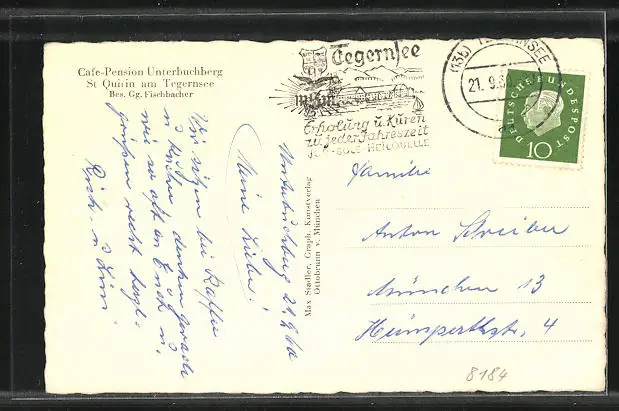 Cafe-Pension Unterbuchberg
St Quirin am Tegernsee
Bes. Gg. Fischbacher
Tegernsee
Erholung u. Kuren
zu jeder Jahreszeit
JOD-SOLE HEILQUELLE
(13b) TEGERNSEE
21. 9.6
DEUTSCHE BUNDESPOST
10
Unterbuchberg 21.9.60
Meine Lieben!
Wir sitzen bei Kaffee
u. Kuchen u. denken gerade
wie so oft an Euch u.
grüßen recht herzl.
Max Stadler, Graph. Kunstverlag
Ottobrunn v. München
Familie
Anton Schreiber
München 13
8184